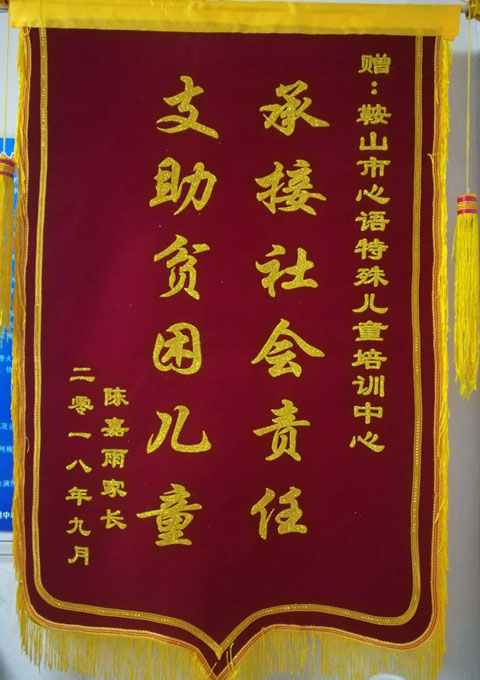 赠：鞍山市心语特殊儿童培训中心
承接社会责任
支助贫困儿童
陈嘉雨家长
二零一八年九月